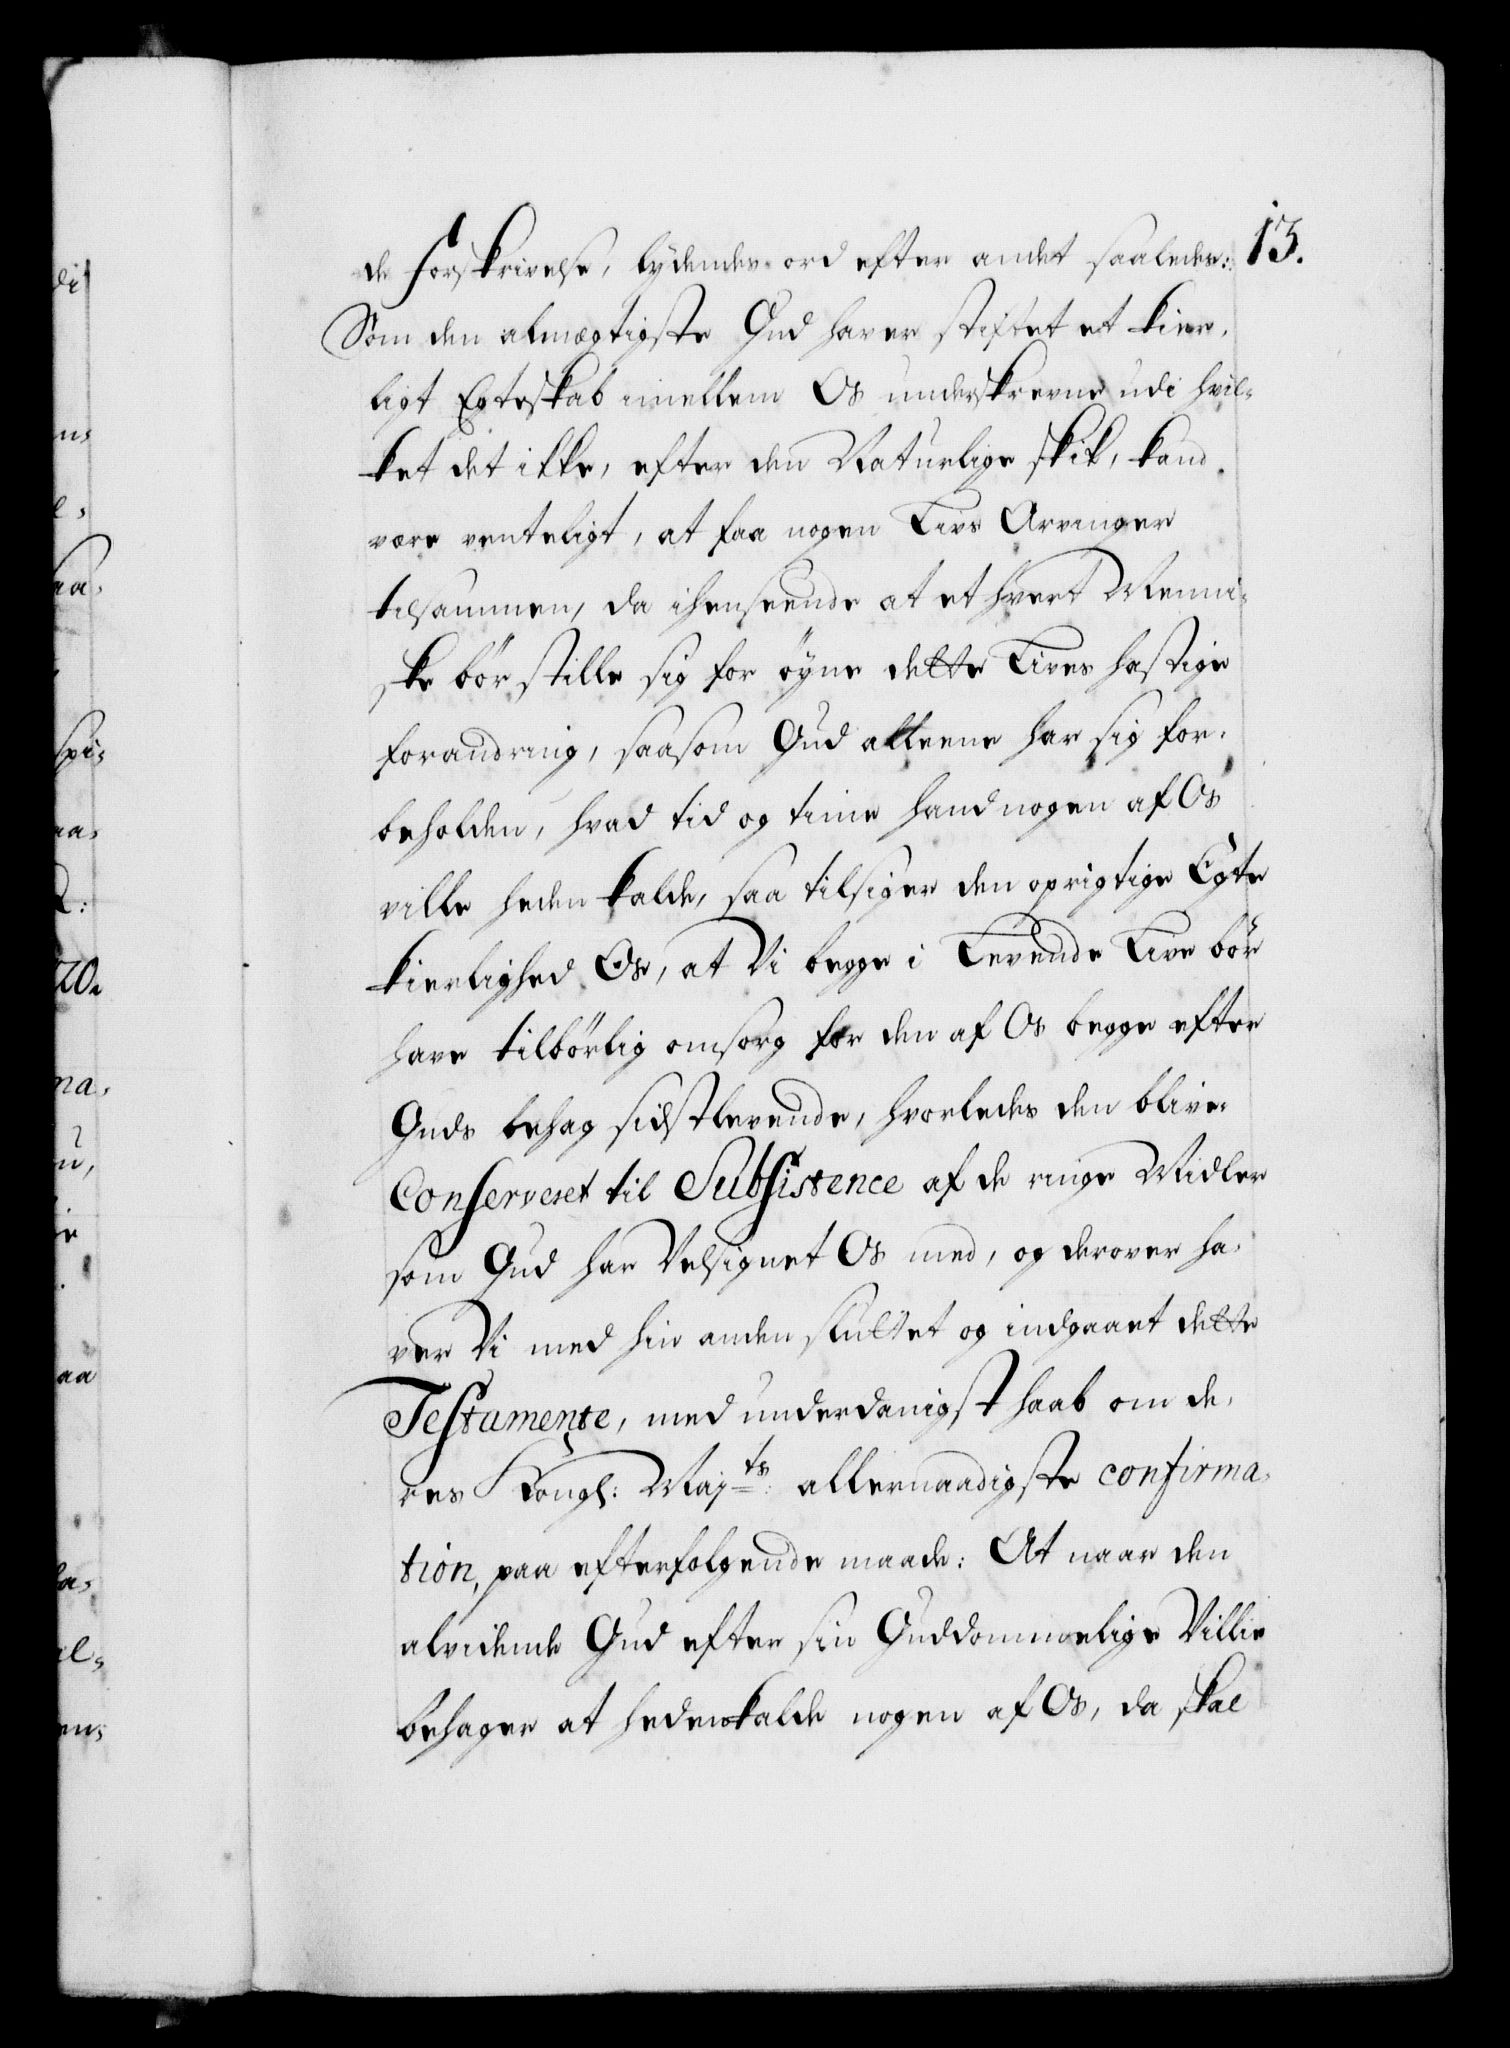 13.
de forskrivelse, lydendes ord efter andet saaledes:
Som den almægtigste Gud haver stiftet et kier-
ligt Egteskab imellem Os underskrevne udi hvil-
ket det ikke, efter den Naturlige skik, kand
være venteligt, at faa nogen Livs Arvinger
tilsammen, da ihenseende at et hvert Menni-
ske bör stille sig for öyne dette Lives hastige
forandring, saasom Gud alleene har sig for-
beholden, hvad tid og time hand nogen af Os
ville heden kalde, saa tilsiger den oprigtige Egte
kierlighed Os, at Vi begge i Levende Live bör
have tilbörlig omsorg for den af Os begge efter
Guds behag sidstlevende, hvorledes den blive
Conserveret til Subsistence af de ringe Midler
som Gud har Velsignet Os med, og derover ha-
ver Vi med hin anden sluttet og indgaaet dette
Testamente, med underdanigst haab om de-
res Kongl: Majts: allernaadigste confirma-
tion, paa efterfølgende maade: At naar den
alvidende Gud efter sin Guddommelige Villie
behager at hedenkalde nogen af Os, da skal